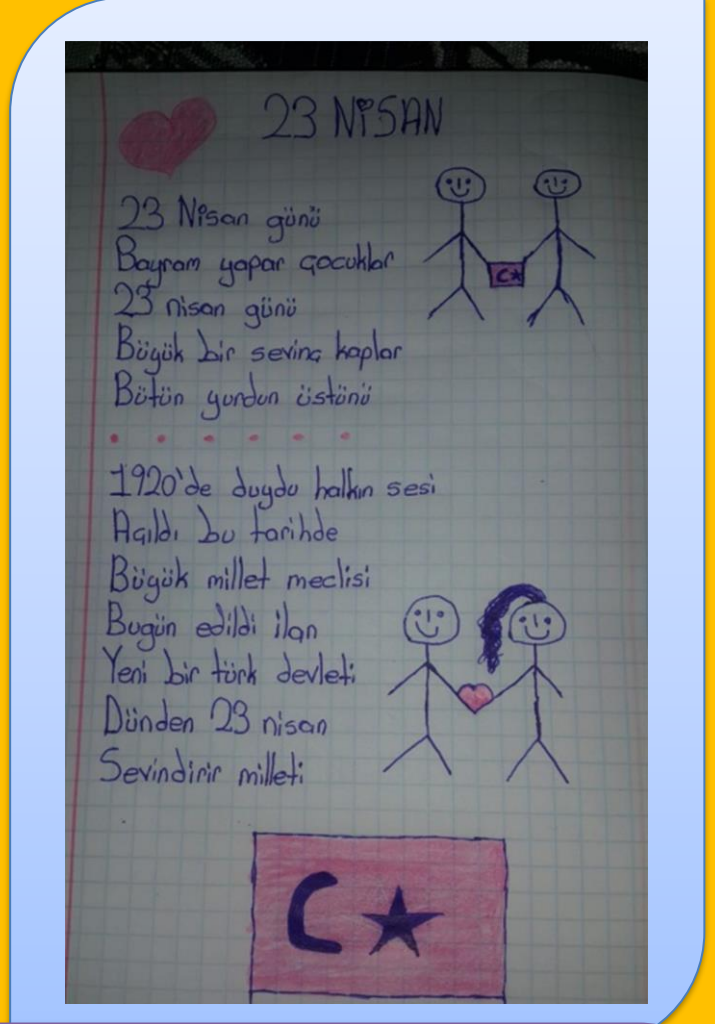 23 NiSAN
23 Nisan günü
Bayram yapar çocuklar
23 nisan günü
Büyük bir sevinç kaplar
Bütün yurdun üstünü
1920'de duydu halkın sesi
Açıldı bu tarihde
Büyük millet meclisi
Bugün edildi ilan
Yeni bir türk devleti
Dünden 23 nisan
Sevindirir milleti